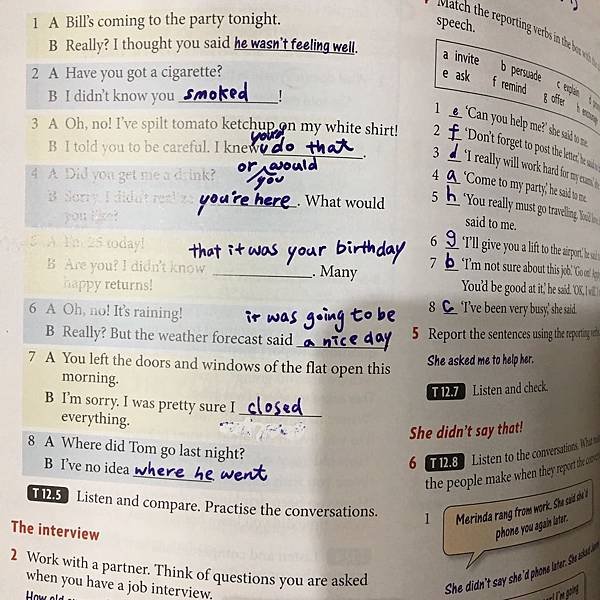 1 A Bill's coming to the party tonight.
B Really? I thought you said he wasn't feeling well.
2 A Have you got a cigarette?
B I didn't know you smoked !
3 A Oh, no! I've spilt tomato ketchup on my white shirt!
B I told you to be careful. I knew u do that .
or you would
4 A Did you get me a drink?
B Sorry, I didn't realize you're here . What would
you like?
5 A I'm 25 today!
that it was your birthday
B Are you? I didn't know . Many
happy returns!
6 A Oh, no! It's raining!
it was going to be
B Really? But the weather forecast said a nice day
7 A You left the doors and windows of the flat open this
morning.
B I'm sorry. I was pretty sure I closed
everything.
8 A Where did Tom go last night?
B I've no idea where he went
T 12.5 Listen and compare. Practise the conversations.
The interview
2 Work with a partner. Think of questions you are asked
when you have a job interview.
How old
Match the reporting verbs in the box with the
speech.
a invite b persuade c explain
e ask f remind g offer h encourage
1 e 'Can you help me?' she said to me.
2 f 'Don't forget to post the letter,' he said
3 d 'I really will work hard for my exams,' she
4 a 'Come to my party,' he said to me.
5 h 'You really must go travelling. You'd
said to me.
6 g 'I'll give you a lift to the airport,' he said
7 b 'I'm not sure about this job.' 'Go on!
You'd be good at it,' he said. 'OK, I will.'
8 c 'I've been very busy,' she said.
5 Report the sentences using the reporting verbs
She asked me to help her.
T 12.7 Listen and check.
She didn't say that!
6 T 12.8 Listen to the conversations. What
the people make when they report the
1 Merinda rang from work. She said she'd
phone you again later.
She didn't say she'd phone later. She asked
I'm going